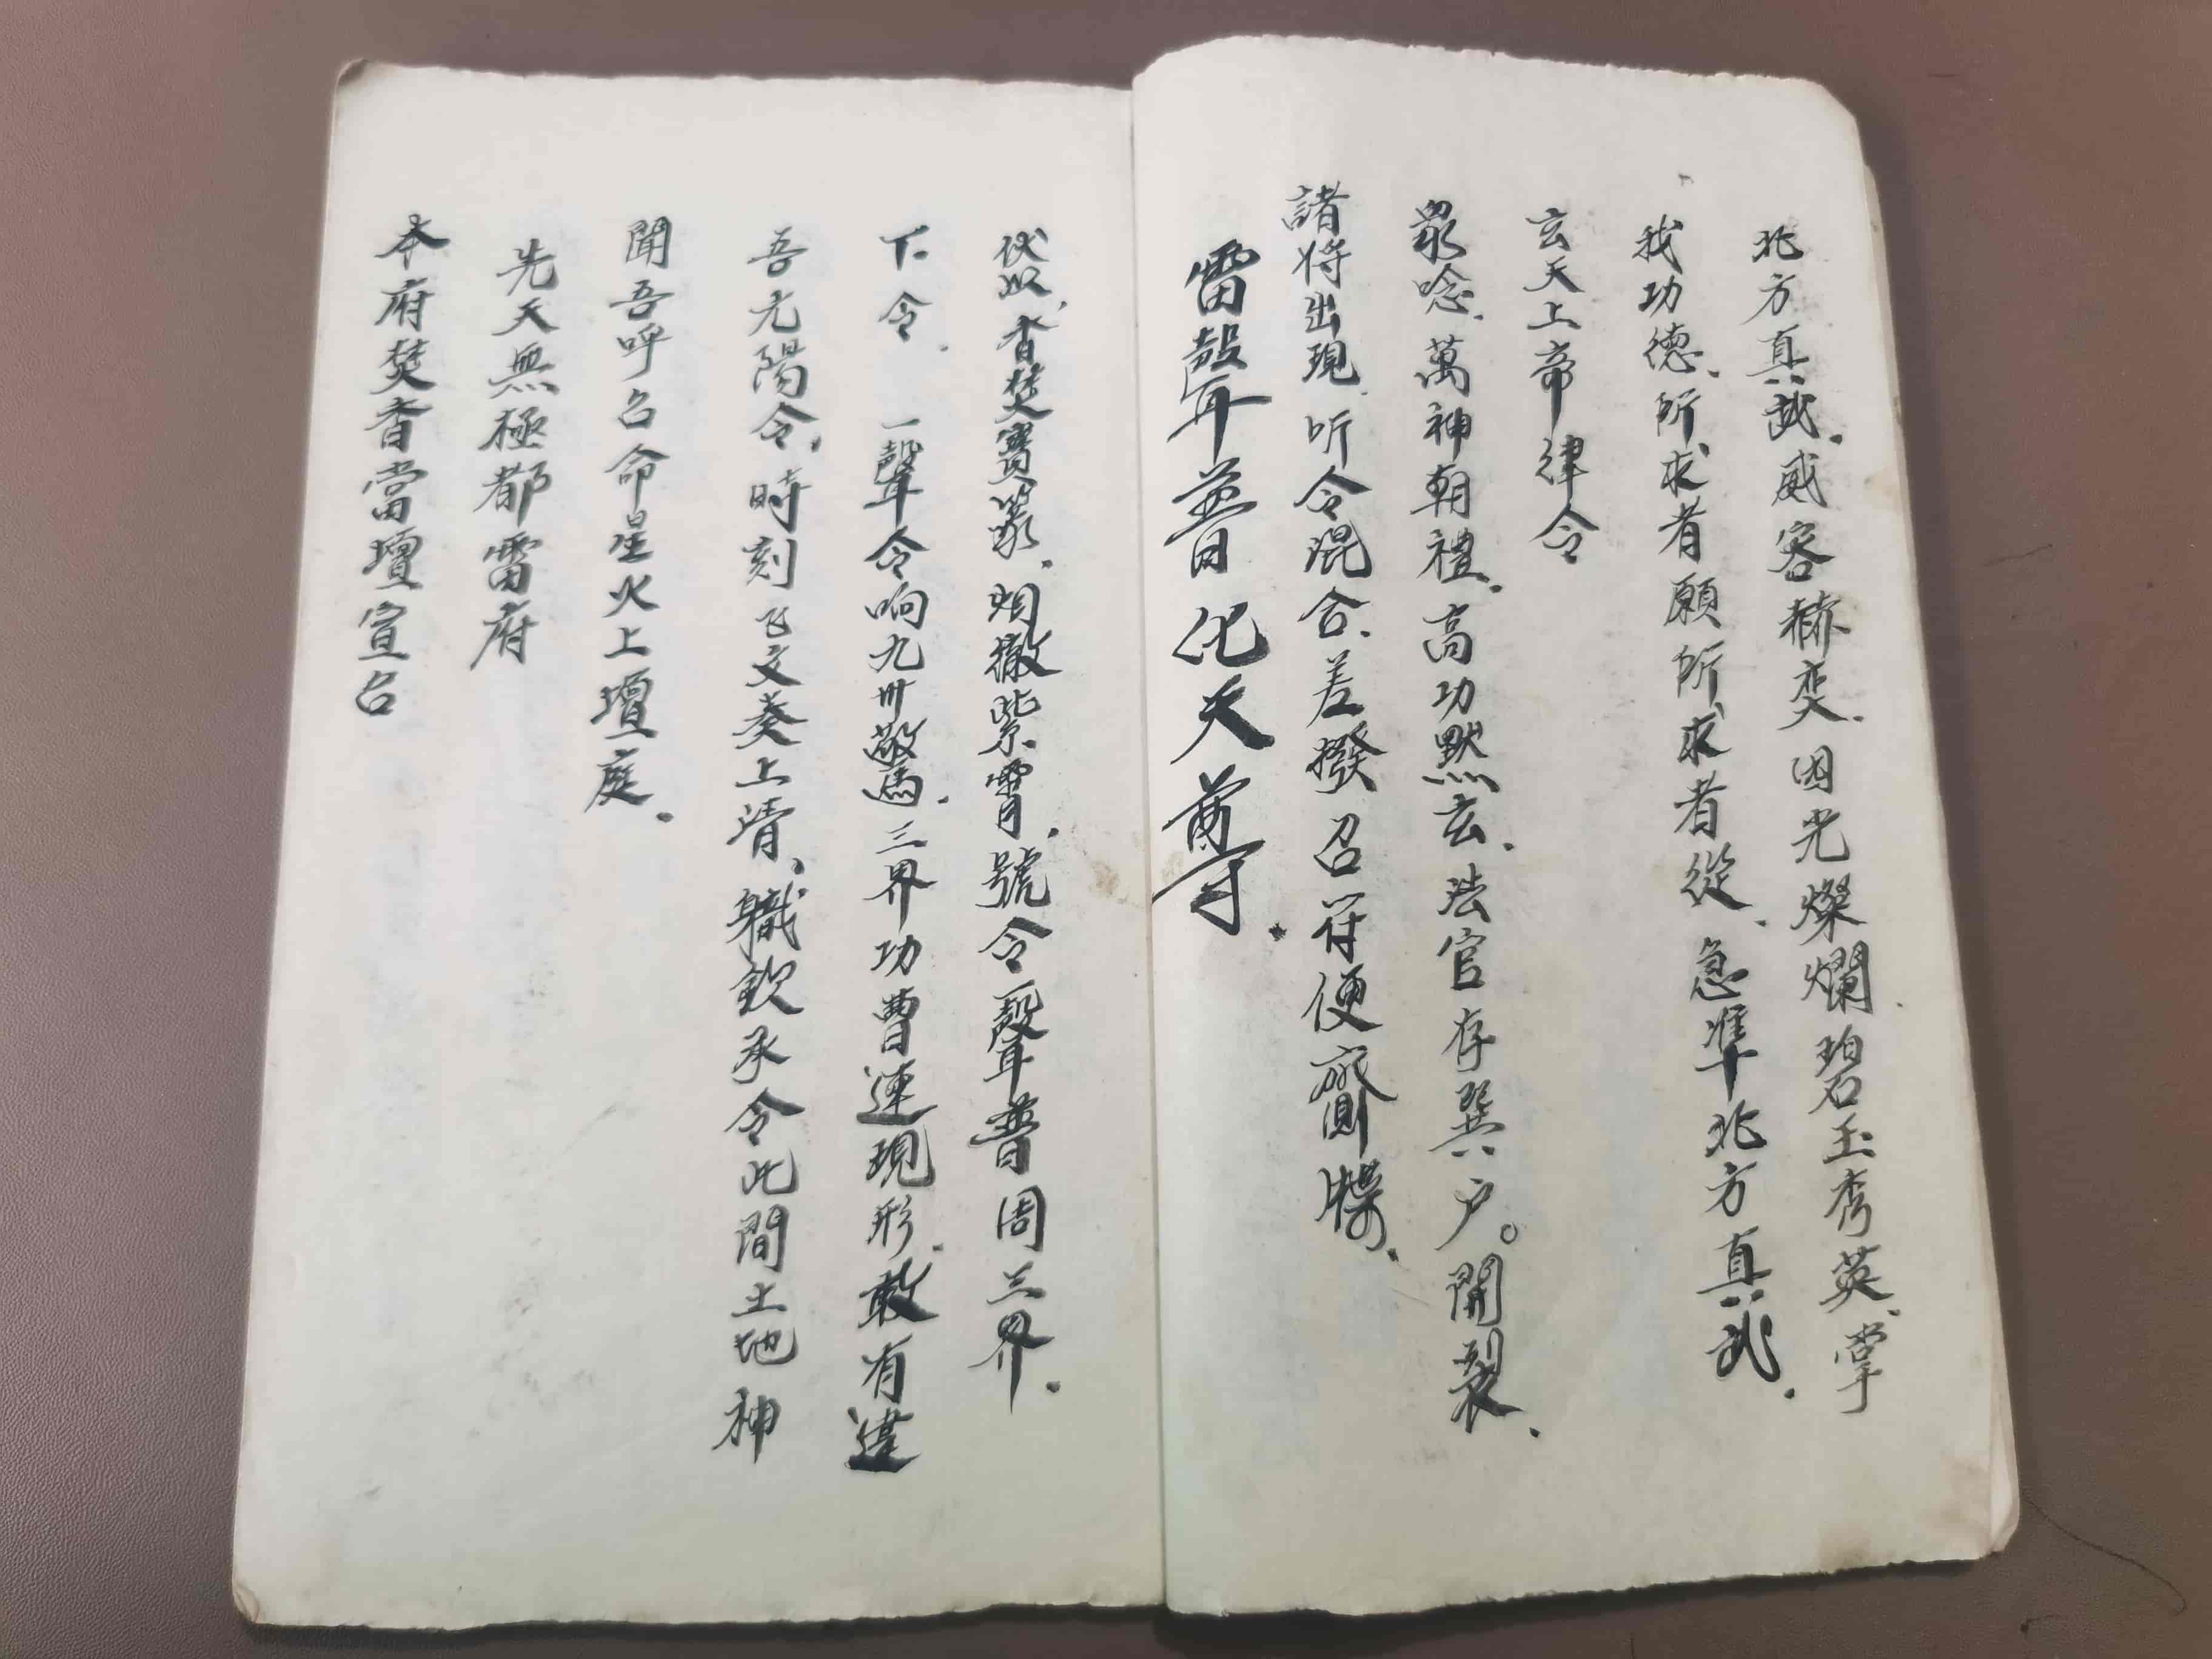 北方真武.威容赫奕.因光燦爛.碧玉秀英.掌
我功德.所求者願所求者從.急準北方真武.
玄天上帝律令
眾唸.萬神朝禮.高功默玄.法官存巽户。開裂.
諸将出現.听令混合.差撥召符便齎牒.
雷聲普化天尊.
伏以.香焚寶篆.烟撤紫霄.號令一聲普周三界.
下令.一聲令响九卅驚.三界功曹速現形.敢有違
吾元陽令.時刻飞文奏上清.職欽承令此間土地神
聞吾呼召命星火上壇庭.
先天無極都雷府
本府焚香當壇宣召